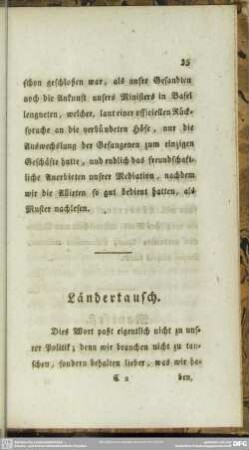 35
schon geschloßen war, als unsre Gesandten
noch die Ankunft unsers Ministers in Basel
leugneten, welcher, laut einer officiellen Rück-
sprache an die verbündeten Höfe, nur die
Auswechslung der Gefangenen zum einzigen
Geschäfte hatte, und endlich das freundschaft-
liche Anerbieten unsrer Mediation, nachdem
wir die Alliirten so gut bedient hatten, als
Muster nachlesen.
Ländertausch.
Dies Wort paßt eigentlich nicht zu uns-
rer Politik; denn wir brauchen nicht zu tau-
schen, sondern behalten lieber, was wir ha-
C 2 ben,